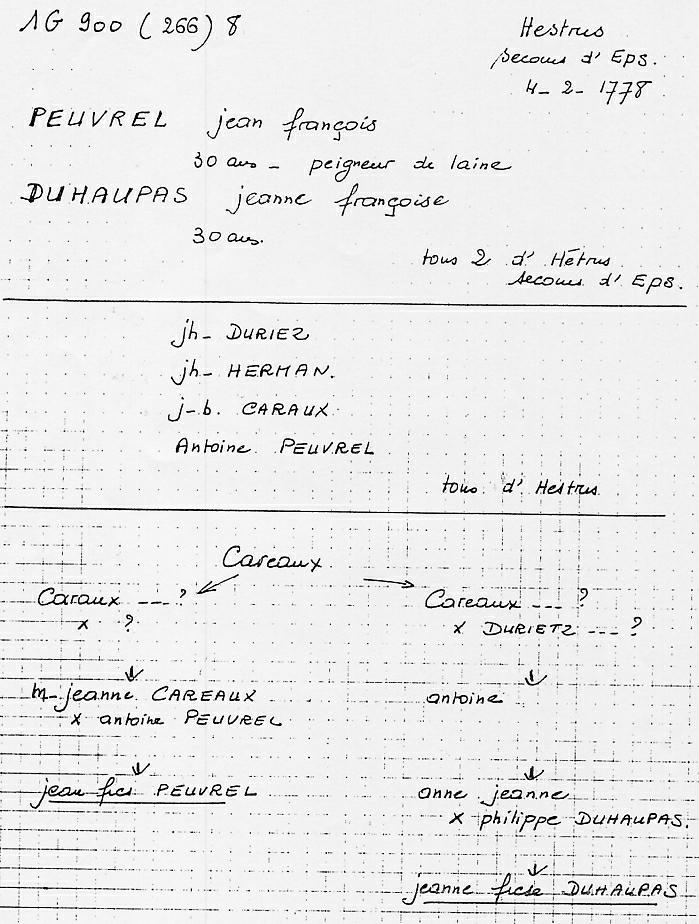 1G 900 (266) 8
Hestrus
secours d' Eps.
4- 2- 1778
PEUVREL jean françois
30 ans - peigneur de laine
DUHAUPAS jeanne françoise
30 ans.
tous 2 d' Hétrus
secours d' Eps.
jh- DURIEZ
jh- HERMAN.
j-b. CARAUX
Antoine PEUVREL
tous d' Hestrus
Careaux
Caraux --- ?
x ?
Careaux --- ?
x DURIETZ --- ?
m-jeanne CAREAUX
x antoine PEUVREL
antoine
jean fcis PEUVREL
anne jeanne
x philippe DUHAUPAS.
jeanne fcise DUHAUPAS